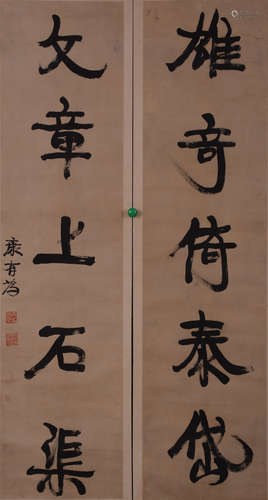 雄奇倚泰岱
文章上石渠
康有為